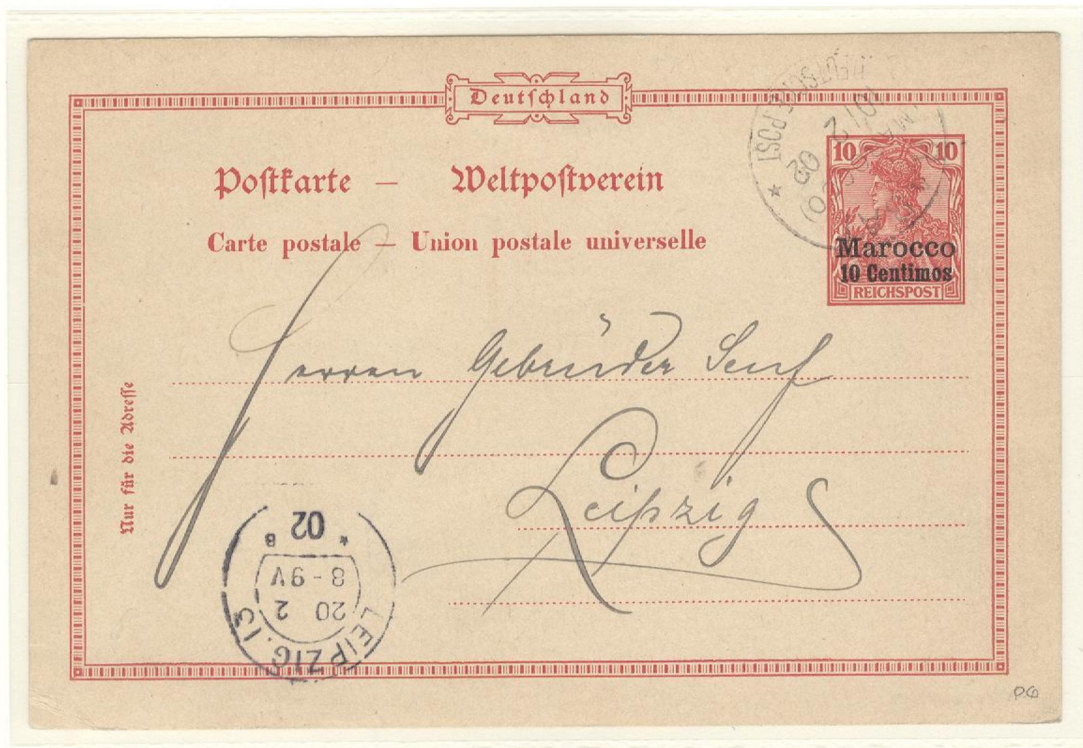 Deutschland
Postkarte — Weltpostverein
Carte postale — Union postale universelle
10 10
Marocco
10 Centimos
REICHSPOST
DEUTSCHE POST *
12 02
Herren Gebrüder Senf
Leipzig
Nur für die Adresse
LEIPZIG. 13
20 2
8-9V
* 02 B